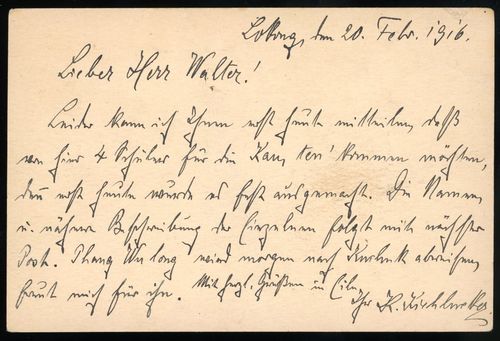 Lokong, den 20. Febr. 1916.
Lieber Herr Walter!
Leider kann ich Ihnen erst heute mitteilen, daß
von hier 4 Schüler für die kommen möchten,
denn erst heute wurde es fest ausgemacht. Die Namen
u. nähere Beschreibung der Einzelnen folgt mit nächster
Post. Thong Wu long wird morgen nach abreisen,
freut mich für ihn. Mit herzl. Grüßen in Eile
Ihr K.